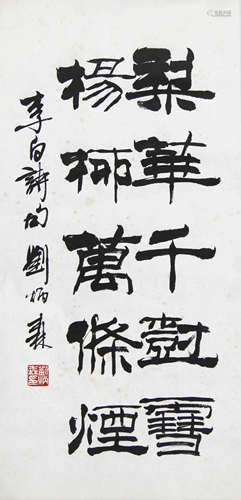 梨華千尌雪
楊柳萬條煙
李白詩句 劉炳森